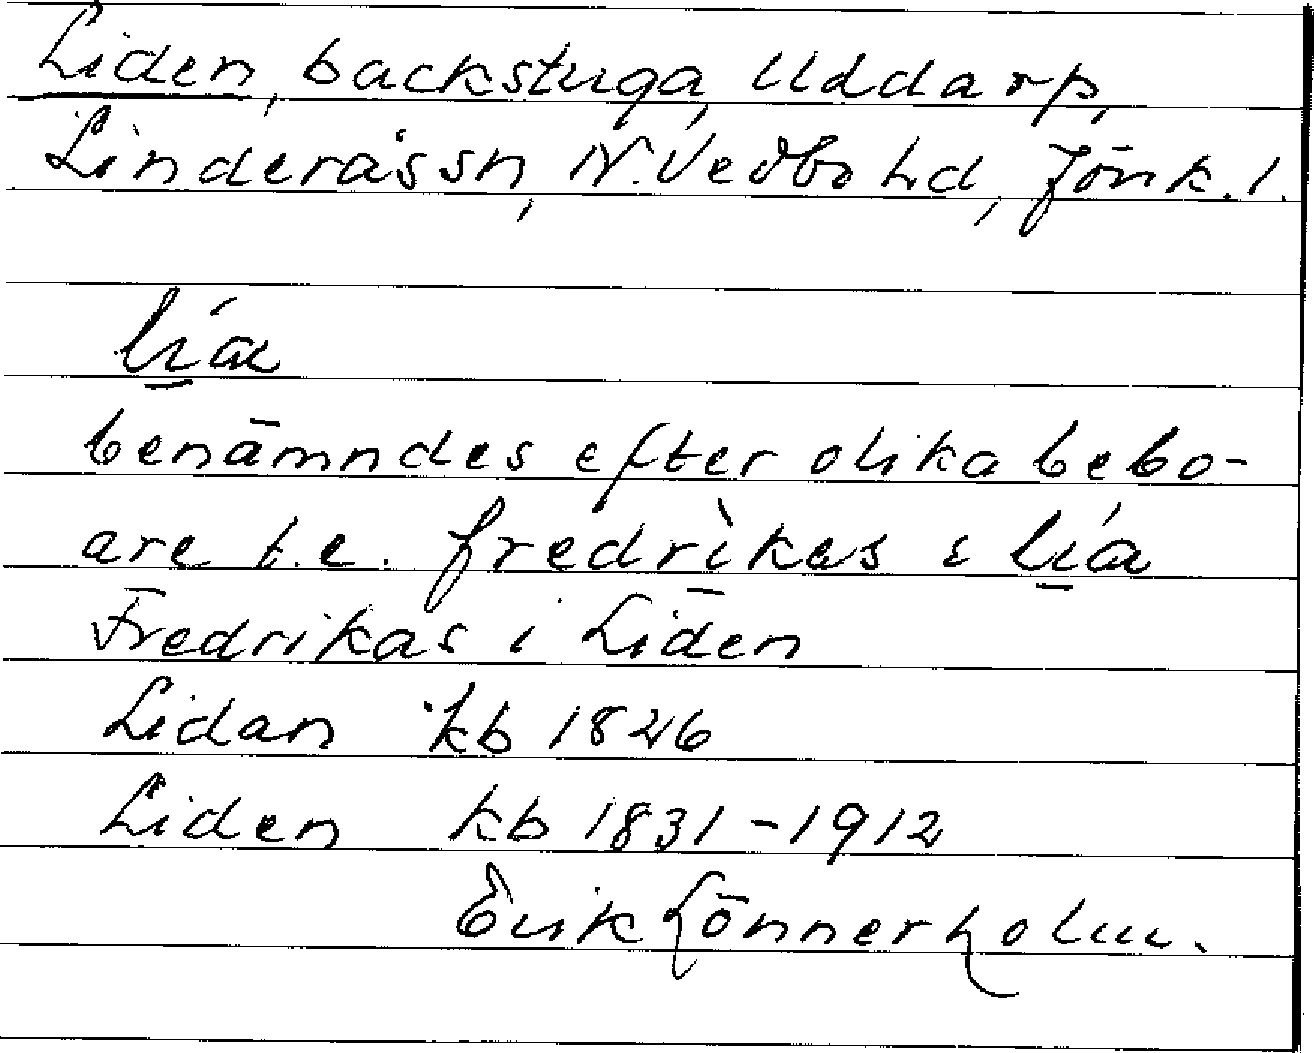 Liden, backstuga, Uddarp,
Linderås sn, N. Vedbo hd, Jönk. l.
li̱´a
benämndes efter olika bebo-
are t.e. fredrìkas i li̱´a
Fredrikas i Liden
Lidan kb 1826
Liden kb 1831-1912
Erik Lönnerholm.